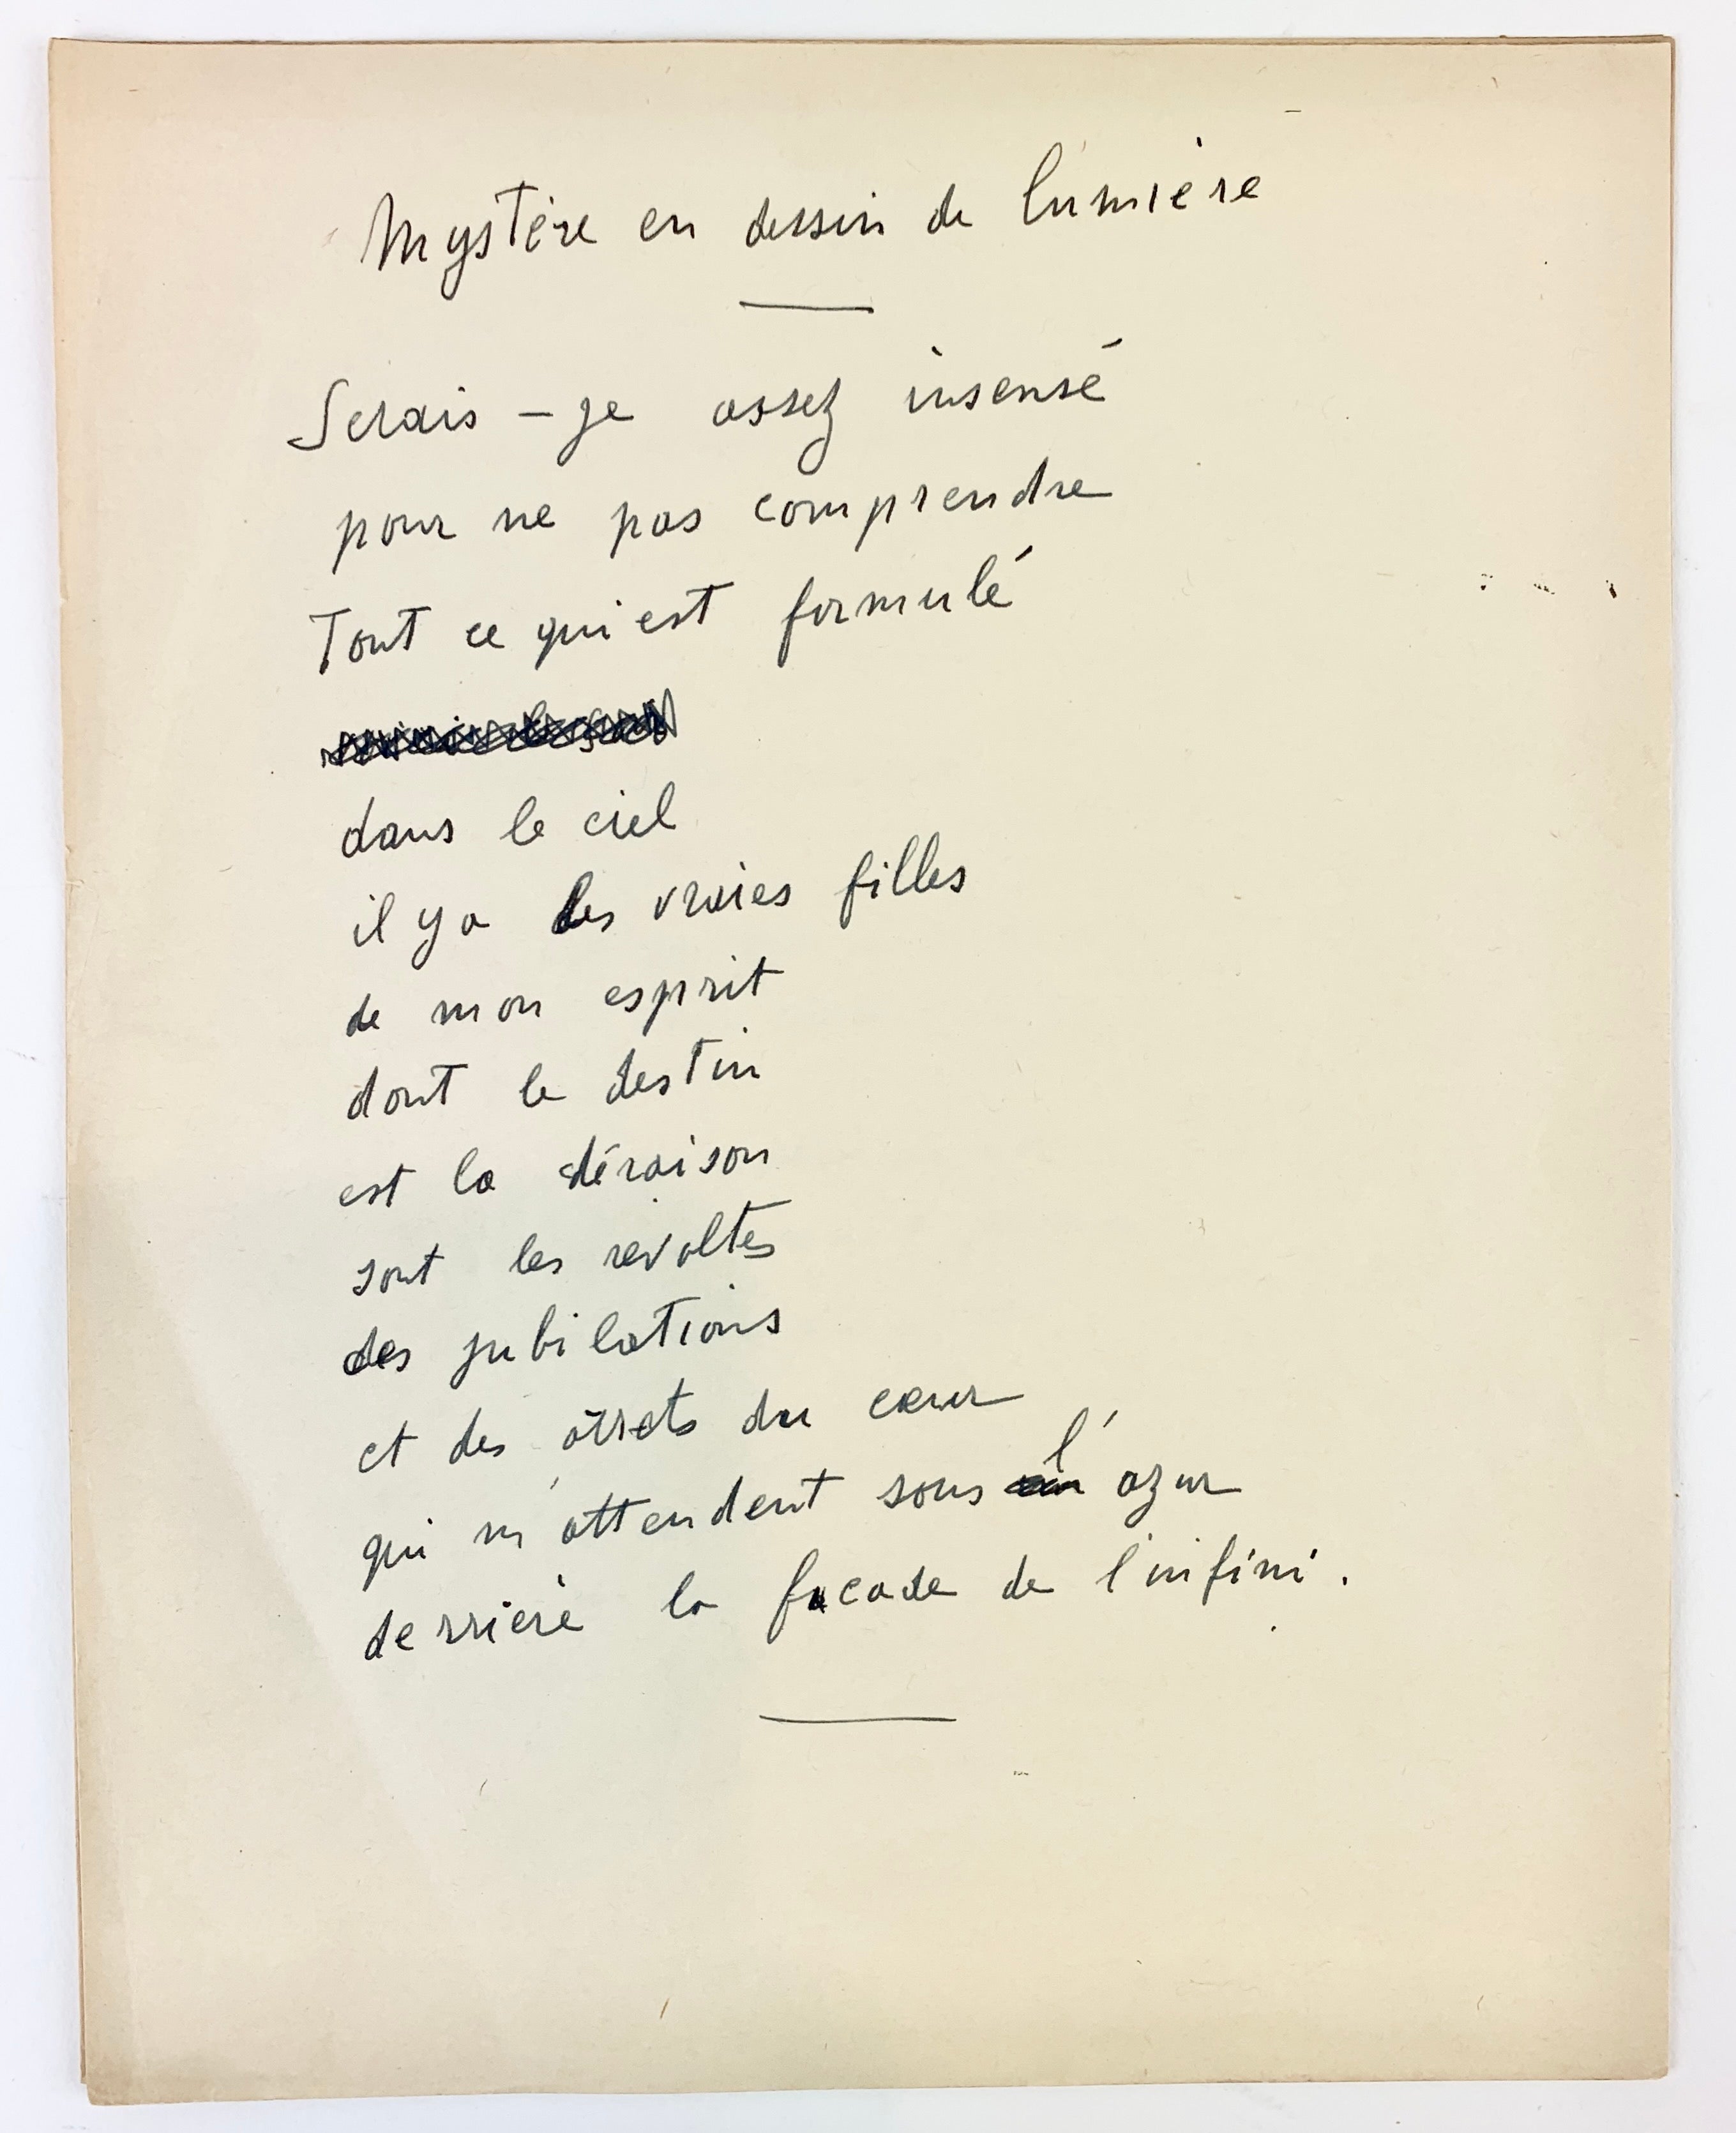 Mystère en dessin de lumière
Serais-je assez insensé
pour ne pas comprendre
Tout ce qui est formulé
dans le ciel
il y a les vraies filles
de mon esprit
dont le destin
est la déraison
sont les révoltes
des jubilations
et des arrets du cœur
qui m'attendent sous l'azur
derrière la facade de l'infini.